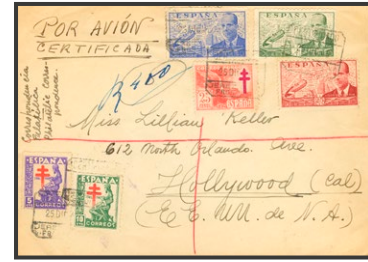 POR AVIÓN
CERTIFICADA
Correspondencia
Filatélica
Philatelic Corres-
pondence.
R 400
ESPAÑA
ESPAÑA
ESPAÑA
25
CORREOS
Miss Lillian Keller
612 North Orlando. Ave.
Hollywood (Cal)
(E. E. UU. de N. A.)
ESPAÑA
5
CORREOS
ESPAÑA
10
CORREOS